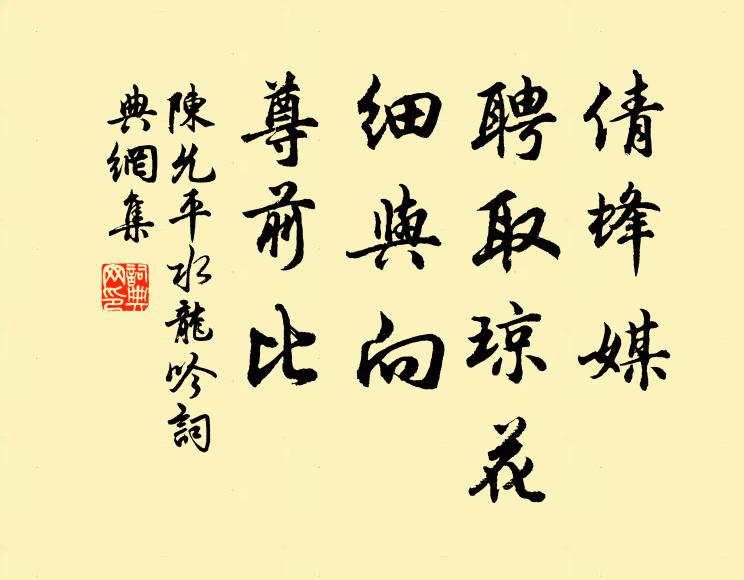 倩蜂媒
聘取琼花
細與向
尊前比
陳允平水龍吟詞
典網集
詞典網印